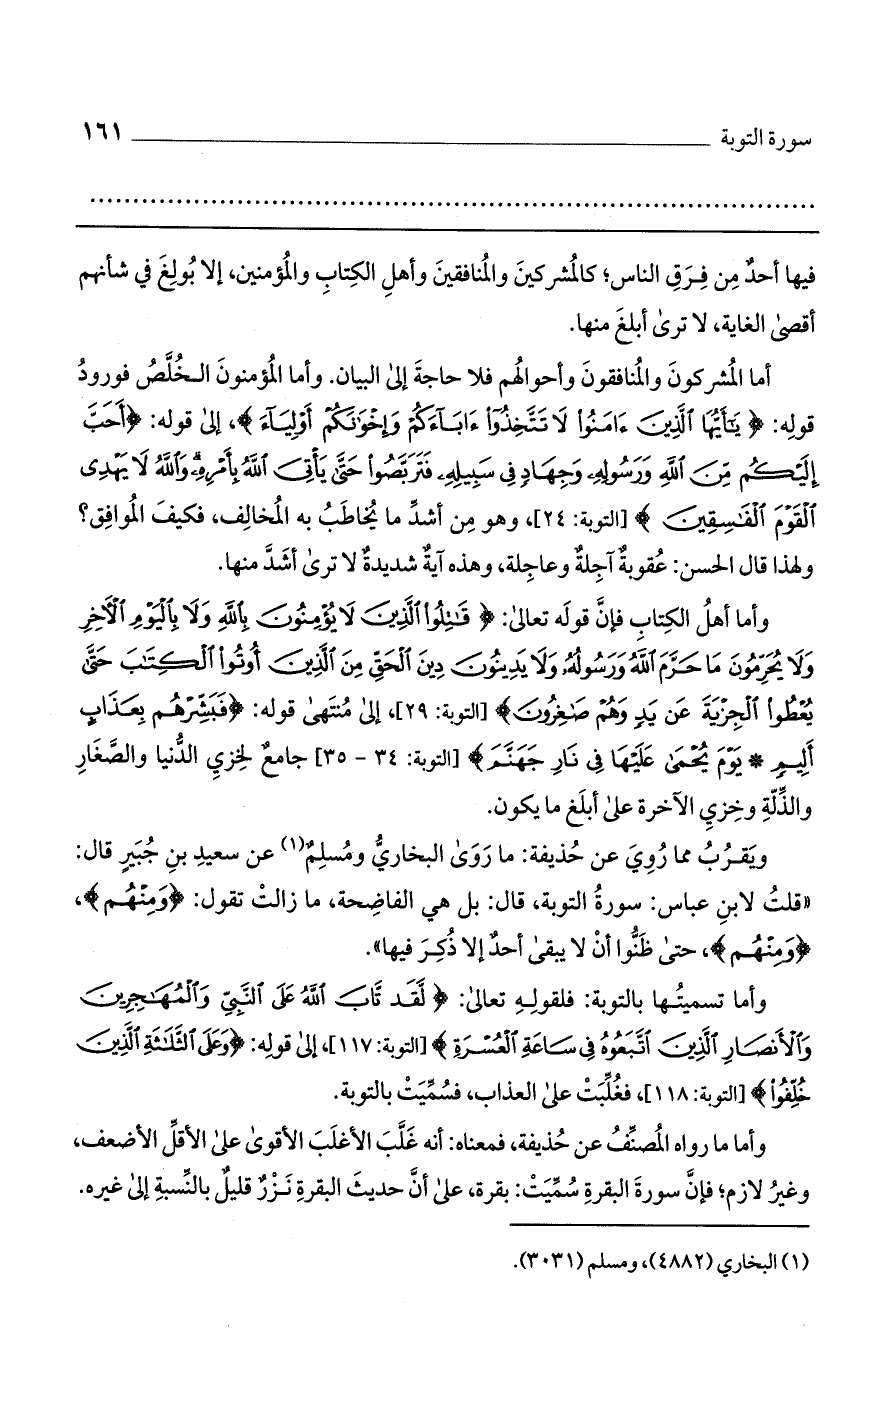 سورة التوبة ١٦١
فيها أحدٌ مِن فِرَقِ الناس؛ كالمُشركينَ والمُنافقينَ وأهلِ الكِتابِ والمُؤمنين، إلا بُولِغَ في شأنهم
أقصىٰ الغاية، لا ترىٰ أبلغَ منها.
أما المُشركونَ والمُنافقونَ وأحوالُهم فلا حاجةَ إلىٰ البيان. وأما المُؤمنونَ الـخُلَّصُ فورودُ
قولِه: ﴿ يَٰٓأَيُّهَا ٱلَّذِينَ ءَامَنُوا۟ لَا تَتَّخِذُوٓا۟ ءَابَآءَكُمْ وَإِخْوَٰنَكُمْ أَوْلِيَآءَ ﴾، إلىٰ قوله: ﴿أَحَبَّ
إِلَيْكُم مِّنَ ٱللَّهِ وَرَسُولِهِۦ وَجِهَادٍ فِى سَبِيلِهِۦ فَتَرَبَّصُوا۟ حَتَّىٰ يَأْتِىَ ٱللَّهُ بِأَمْرِهِۦ ۗ وَٱللَّهُ لَا يَهْدِى
ٱلْقَوْمَ ٱلْفَٰسِقِينَ ﴾ [التوبة: ٢٤]، وهو مِن أشدِّ ما يُخاطَبُ به المُخالِف، فكيفَ المُوافِق؟
ولهذا قال الحسن: عُقوبةٌ آجِلةٌ وعاجِلة، وهذه آيةٌ شديدةٌ لا ترىٰ أشَدَّ منها.
وأما أهلُ الكِتابِ فإنَّ قولَه تعالىٰ: ﴿ قَٰتِلُوا۟ ٱلَّذِينَ لَا يُؤْمِنُونَ بِٱللَّهِ وَلَا بِٱلْيَوْمِ ٱلْءَاخِرِ
وَلَا يُحَرِّمُونَ مَا حَرَّمَ ٱللَّهُ وَرَسُولُهُۥ وَلَا يَدِينُونَ دِينَ ٱلْحَقِّ مِنَ ٱلَّذِينَ أُوتُوا۟ ٱلْكِتَٰبَ حَتَّىٰ
يُعْطُوا۟ ٱلْجِزْيَةَ عَن يَدٍ وَهُمْ صَٰغِرُونَ﴾ [التوبة: ٢٩]، إلىٰ مُنتَهىٰ قوله: ﴿فَبَشِّرْهُم بِعَذَابٍ
أَلِيمٍ * يَوْمَ يُحْمَىٰ عَلَيْهَا فِى نَارِ جَهَنَّمَ﴾ [التوبة: ٣٤ - ٣٥] جامعٌ لخِزيِ الدُّنيا والصَّغَارِ
والذِّلّةِ وخِزيِ الآخرة علىٰ أبلَغِ ما يكون.
ويَقـرُبُ مما رُوِيَ عن حُذيفة: ما رَوَىٰ البخاريُّ ومُسلِمٌ(١) عن سعيدِ بنِ جُبَيرٍ قال:
«قلتُ لابنِ عباس: سورةُ التوبة، قال: بل هي الفاضِحة، ما زالتْ تقول: ﴿وَمِنْهُم﴾،
﴿وَمِنْهُم﴾، حتىٰ ظَنُّوا أنْ لا يبقىٰ أحدٌ إلا ذُكِرَ فيها».
وأما تسميتُـها بالتوبة: فلقولِـهِ تعالىٰ: ﴿ لَّقَد تَّابَ ٱللَّهُ عَلَى ٱلنَّبِيِّ وَٱلْمُهَٰجِرِينَ
وَٱلْأَنصَارِ ٱلَّذِينَ ٱتَّبَعُوهُ فِى سَاعَةِ ٱلْعُسْرَةِ ﴾ [التوبة: ١١٧]، إلىٰ قولِه: ﴿وَعَلَى ٱلثَّلَٰثَةِ ٱلَّذِينَ
خُلِّفُوا۟ ﴾ [التوبة: ١١٨]، فغُلِّبَتْ علىٰ العذاب، فسُمِّيَتْ بالتوبة.
وأما ما رواه المُصنِّفُ عن حُذيفة، فمعناه: أنه غَلَّبَ الأغلَبَ الأقوىٰ علىٰ الأقلِّ الأضعف،
وغيرُ لازم؛ فإنَّ سورةَ البقرةِ سُمِّيَتْ: بقرة، علىٰ أنَّ حديثَ البقرةِ نَـزْرٌ قليلٌ بالنِّسبةِ إلىٰ غيره.
(١) البخاري (٤٨٨٢)، ومسلم (٣٠٣١).